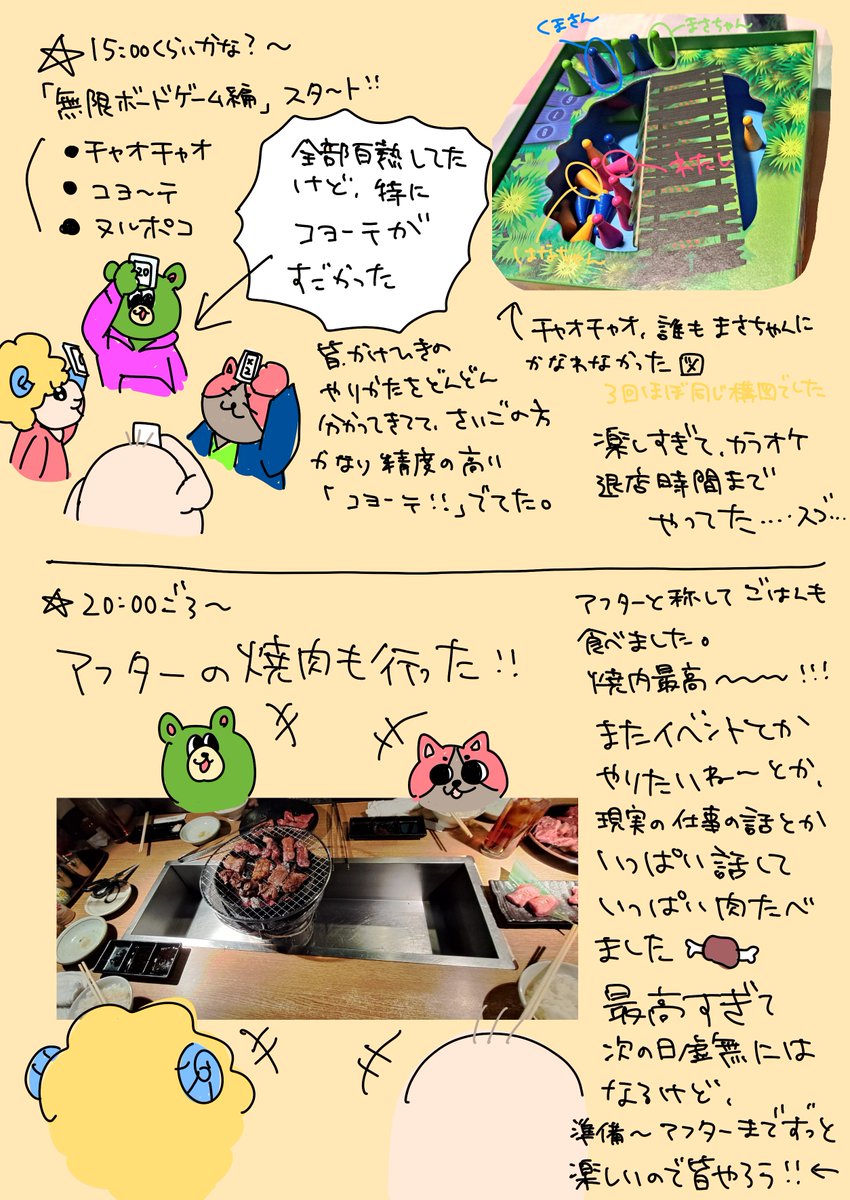 ☆15:00くらいかな?〜
「無限ボードゲーム編」スタート!!
●チャオチャオ
●コヨーテ
●ヌルポコ
全部白熱してた
けど、特に
コヨーテが
すごかった
くまさん
まさちゃん
わたし
はなちゃん
20
×2
↑チャオチャオ、誰もまさちゃんに
かなわなかった図
3回ほぼ同じ構図でした
皆、かけひきの
やりかたをどんどん
分かってきてて、さいごの方
かなり精度の高い
「コヨーテ!!」でてた。
楽しすぎて、カラオケ
退店時間まで
やってた....スゴ...
☆20:00ごろ〜
アフターの焼肉も行った!!
アフターと称してごはんも
食べました。
焼肉最高〜〜〜!!!
またイベントとか
やりたいね〜とか、
現実の仕事の話とか
いっぱい話して
いっぱい肉たべ
ました
最高すぎて
次の日虚無には
なるけど、
準備〜アフターまでずっと
楽しいので皆やろう!!←